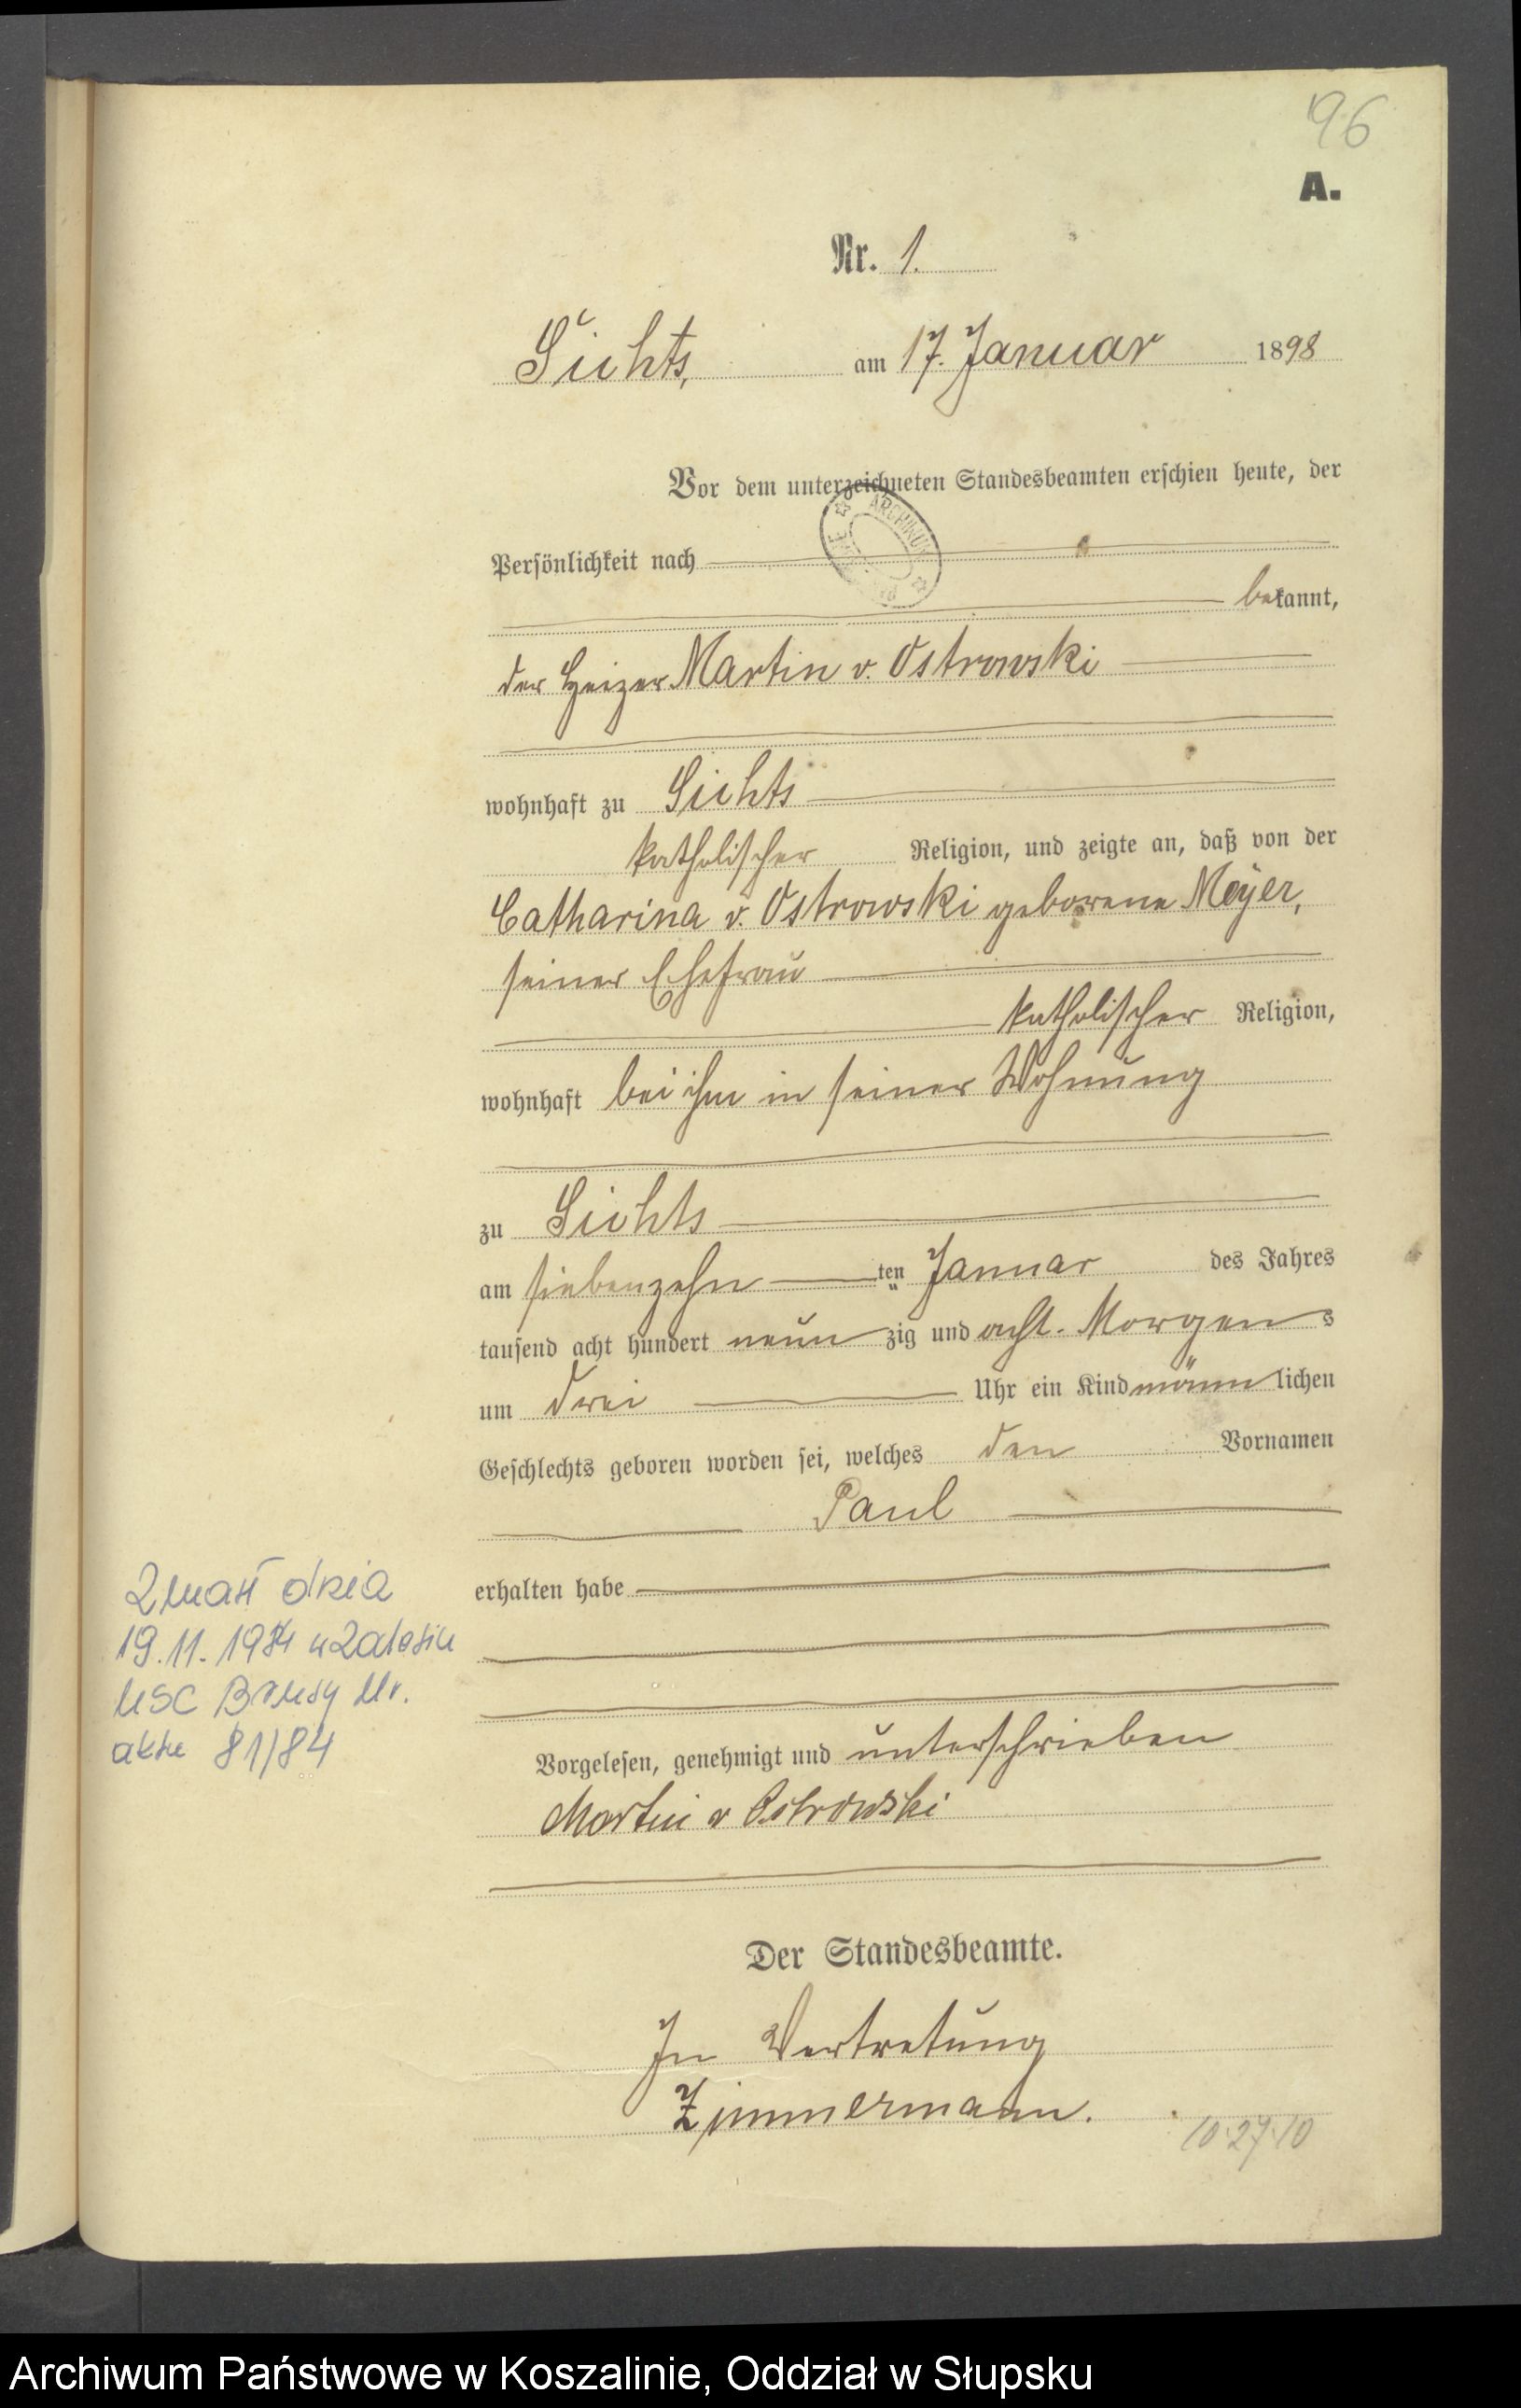 96
A.
Nr. 1.
Sichts, am 17. Januar 1898
Vor dem unterzeichneten Standesbeamten erschien heute, der
Persönlichkeit nach
bekannt,
der Heizer Martin v. Ostrowski
wohnhaft zu Sichts
katholischer Religion, und zeigte an, daß von der
Catharina v. Ostrowski geborene Meyer,
seiner Ehefrau
katholischer Religion,
wohnhaft bei ihm in seiner Wohnung
zu Sichts
am siebenzehn ten Januar des Jahres
tausend acht hundert neun zig und acht. Morgens
um drei Uhr ein Kind männlichen
Geschlechts geboren worden sei, welches den Vornamen
Paul
erhalten habe
Zmarł dnia
19.11.1984 w Zalesiu
USC Brusy Nr.
aktu 81/84
Vorgelesen, genehmigt und unterschrieben
Martin v Ostrowski
Der Standesbeamte.
In Vertretung
Zimmermann.
10.27.10
Archiwum Państwowe w Koszalinie, Oddział w Słupsku